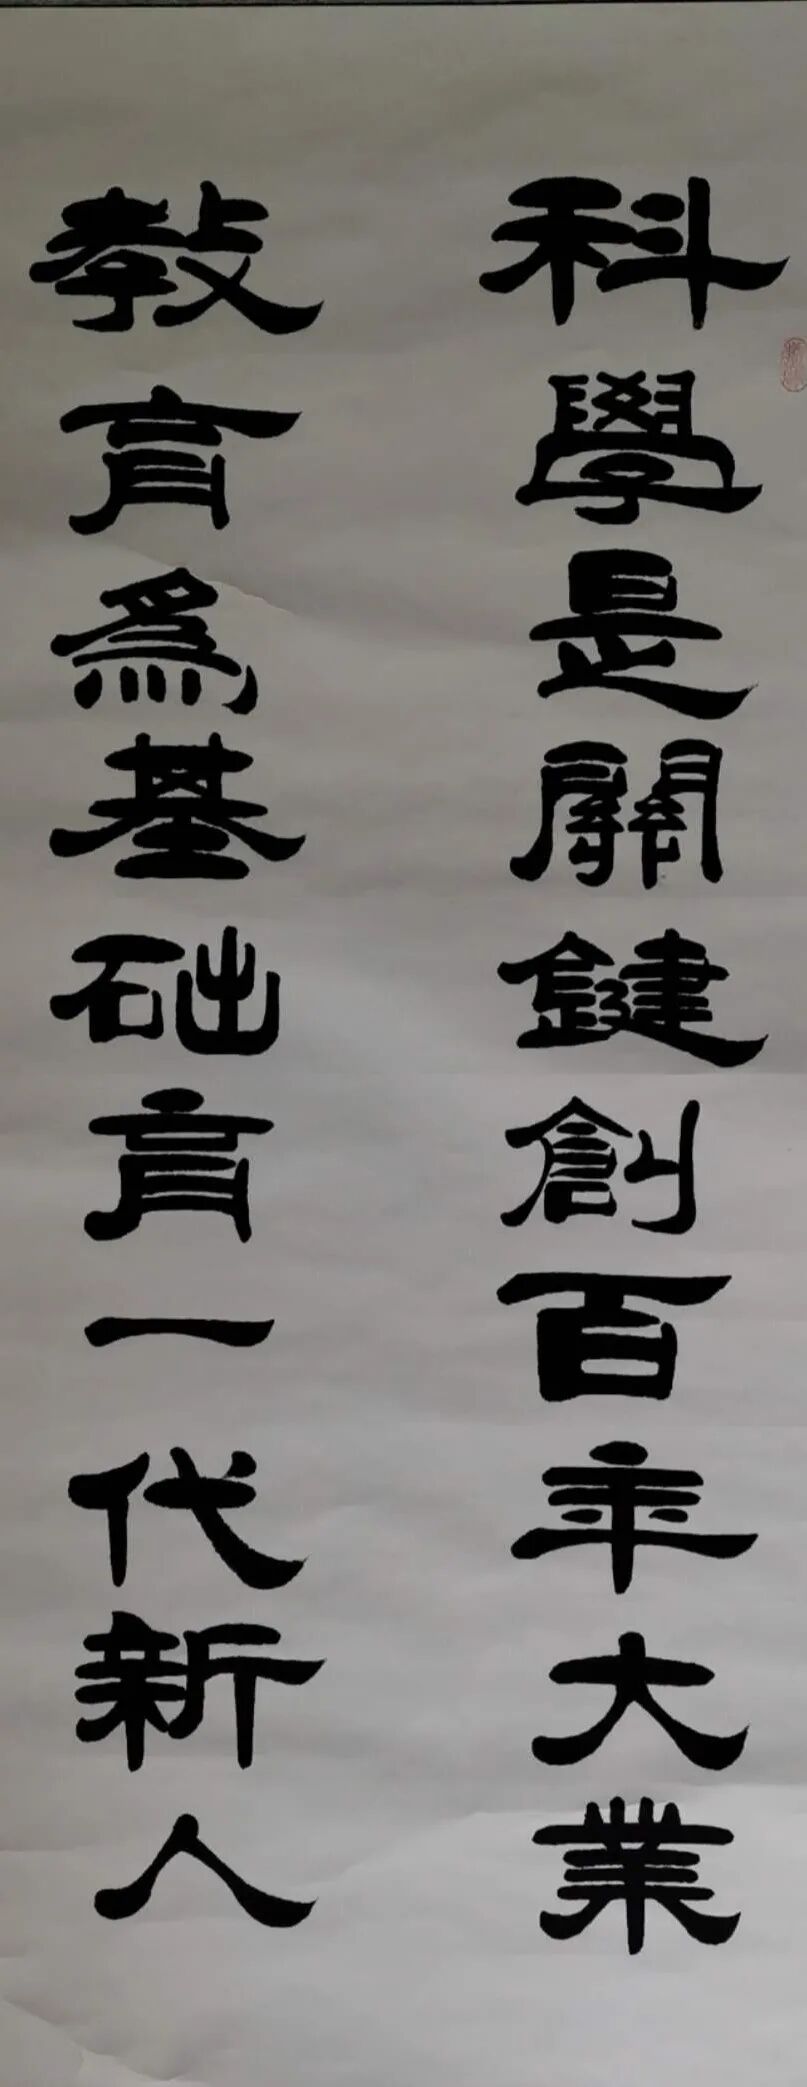 科學是關鍵創百年大業
教育爲基础育一代新人